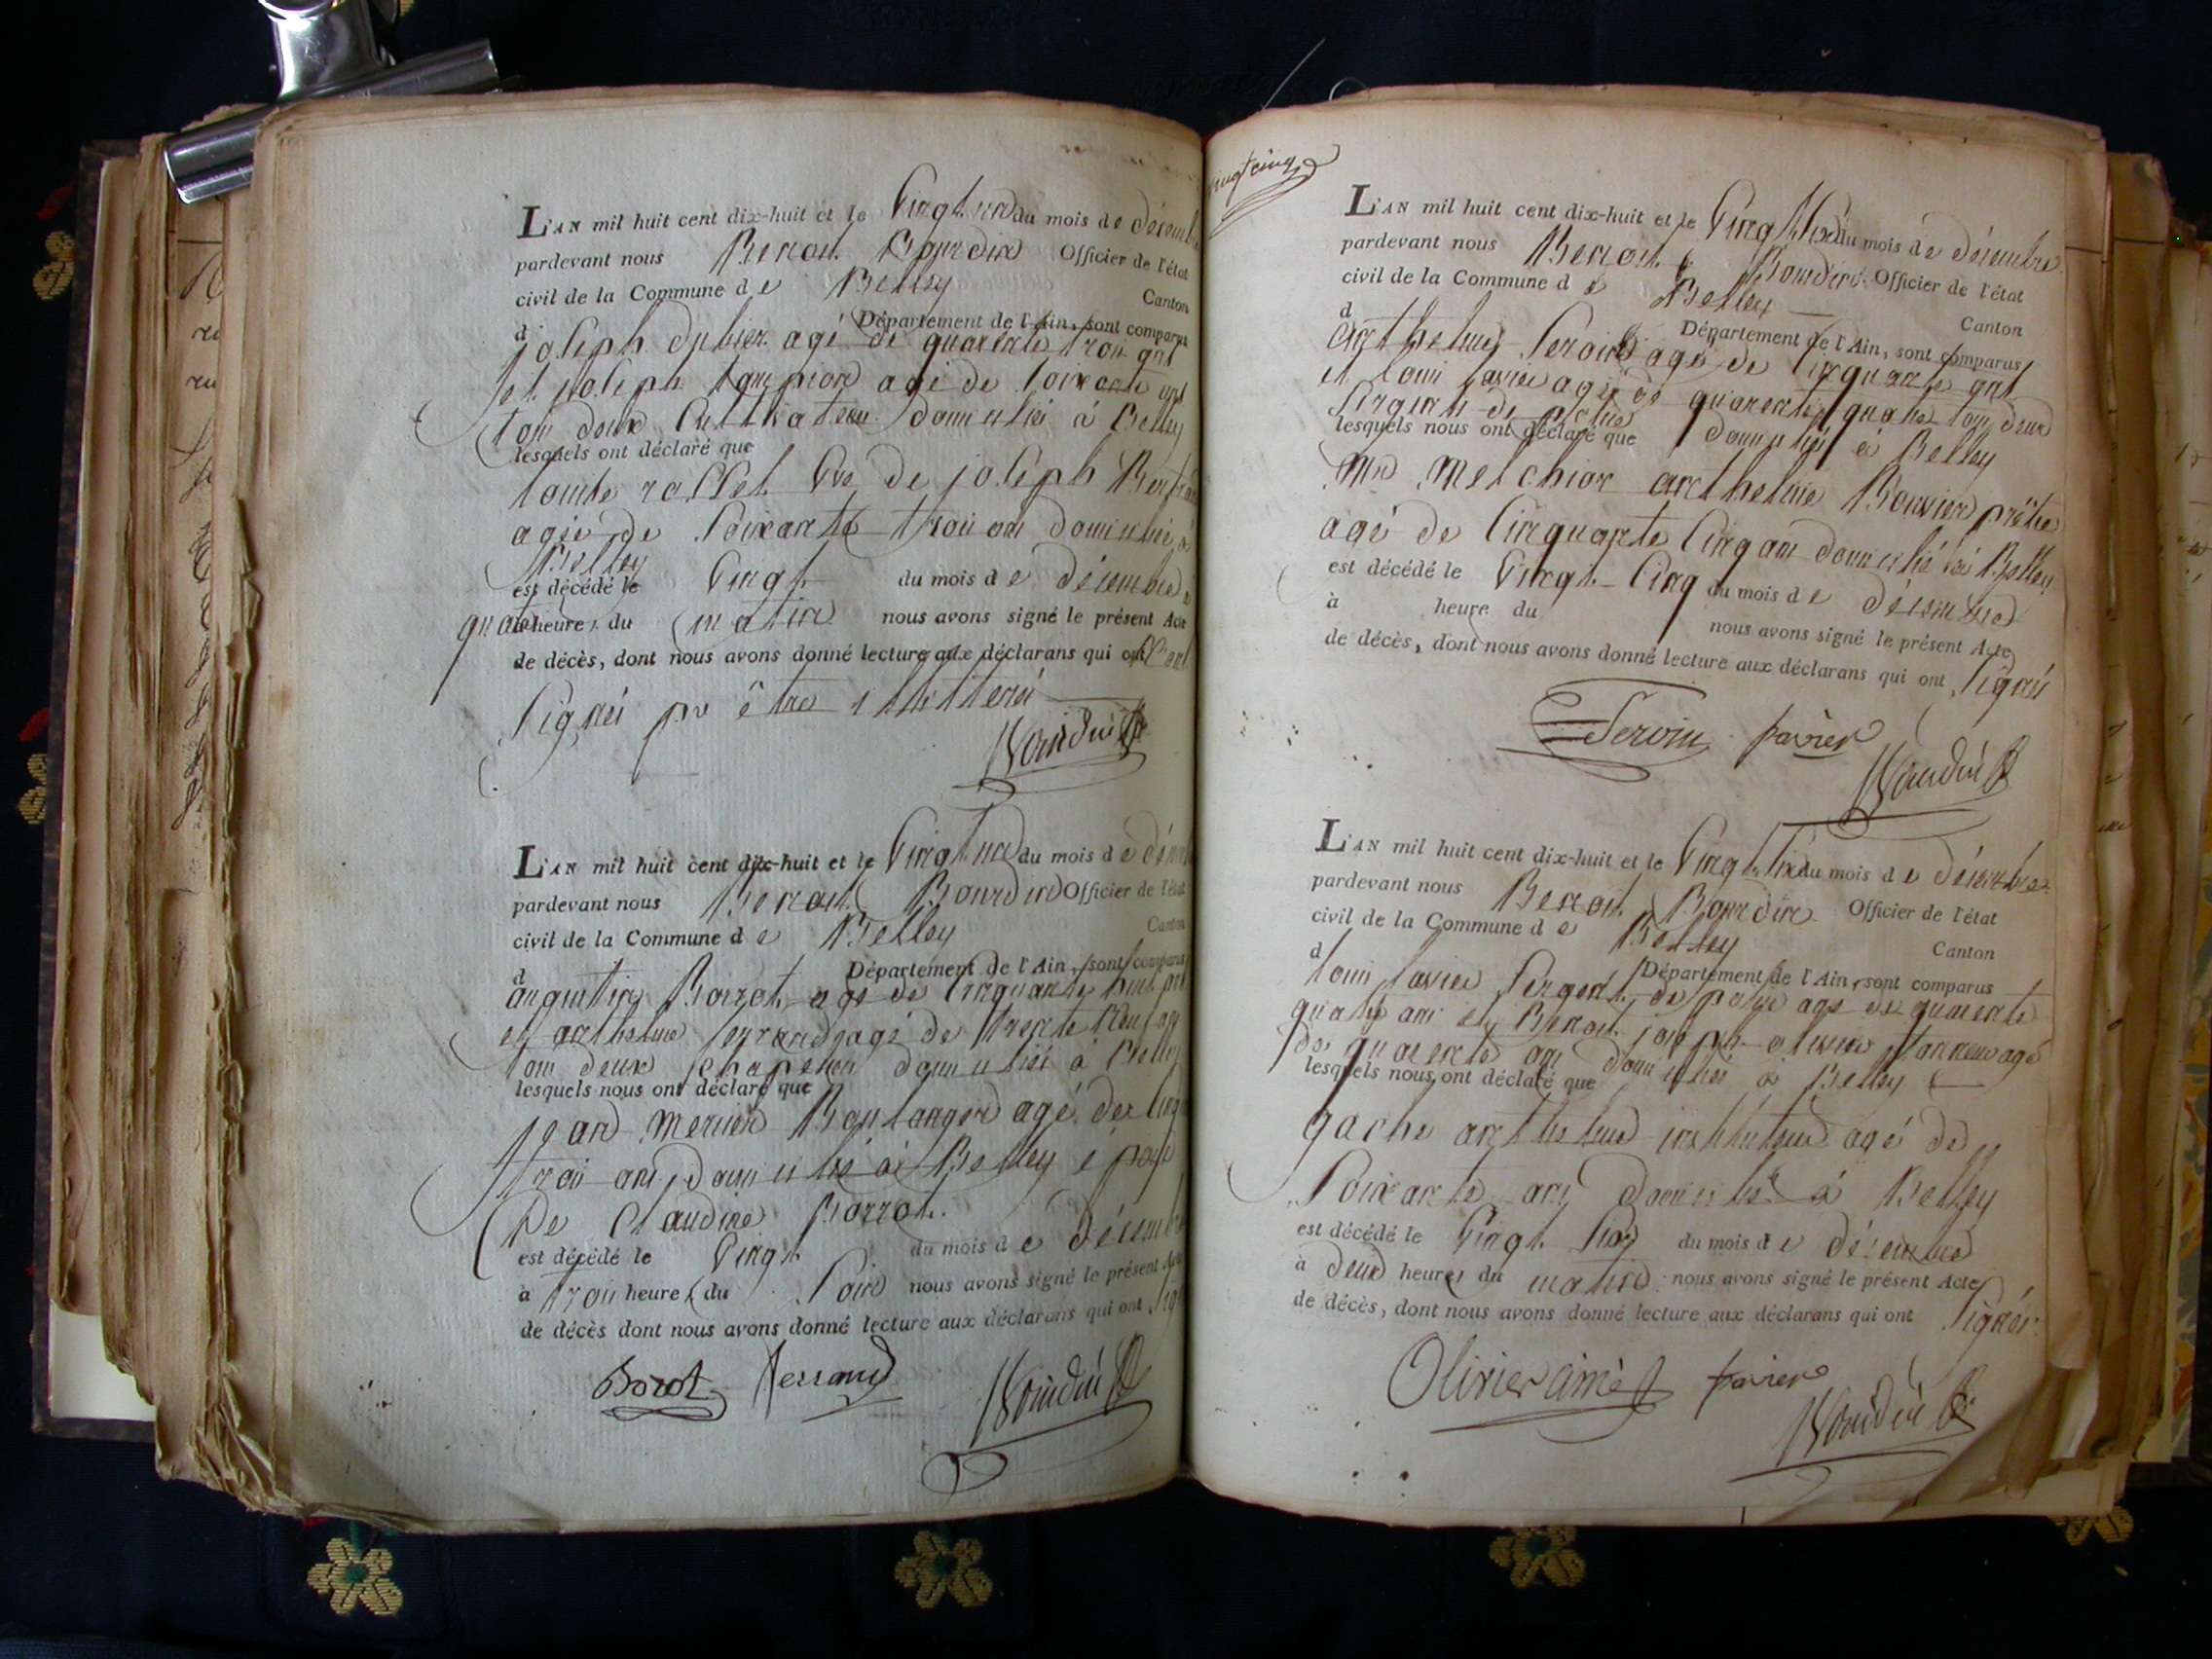 L'AN mil huit cent dix-huit et le Vingt un du mois de décemb
pardevant nous Benoit Bourdin Officier de l'état
civil de la Commune de Belley Canton
d Département de l'Ain, sont comparus
joseph dubier agé de quarente trois ans
et joseph agé de soixante ans
tous deux Cultivateurs domiciliés à Belley
lesquels ont déclaré que
Louise rosset Vve de joseph
agée de Soixante trois ans domiciliée à
Belley
est décédé le Vingt du mois de décembre à
quatre heures du matin nous avons signé le présent Acte
de décès, dont nous avons donné lecture aux déclarans qui ont
signés pr être illitterés
Bourdin
L'AN mil huit cent dix-huit et le Vingt un du mois de
pardevant nous Benoit Bourdin Officier de l'état
civil de la Commune de Belley Canton
d Département de l'Ain, sont comparus
augustin Borrot agé de Cinquante huit ans
et anthelme ferrand agé de trente neuf ans
tous deux Chapeliers domiciliés à Belley
lesquels nous ont déclaré que
jean mercier Boulanger agé de Cinq
trois ans domicilié à Belley époux
De Claudine Borrot
est décédé le Vingt du mois de décembre
à trois heures du Soir nous avons signé le présent Acte
de décès dont nous avons donné lecture aux déclarans qui ont sig
Borrot ferrand
Bourdin
vingt cinq
L'AN mil huit cent dix-huit et le Vingt Six du mois de décembre
pardevant nous Benoit Bourdin Officier de l'état
civil de la Commune de Belley Canton
d Département de l'Ain, sont comparus
anthelme Peroin agé de Cinquante ans
et Louis favier agé de quarente quatre tous deux
Sergents de police
lesquels nous ont déclaré que domiciliés à Belley
Mr Melchior anthelme Bouvier prêtre
agé de Cinquante Cinq ans domicilié à Belley
est décédé le Vingt Cinq du mois de décembre
à heure du nous avons signé le présent Acte
de décès, dont nous avons donné lecture aux déclarans qui ont signés
favier
Bourdin
L'AN mil huit cent dix-huit et le Vingt Six du mois de décembre
pardevant nous Benoit Bourdin Officier de l'état
civil de la Commune de Belley Canton
d Département de l'Ain, sont comparus
Louis favier Sergent de police agé de quarente
quatre ans et Benoit joseph olivier tanneur agé
de quarente ans domiciliés à Belley
lesquels nous ont déclaré que
gache anthelme instituteur agé de
Soixante ans domicilié à Belley
est décédé le Vingt Six du mois de décembre
à deux heures du matin nous avons signé le présent Acte
de décès, dont nous avons donné lecture aux déclarans qui ont signés
Olivier aimé favier
Bourdin